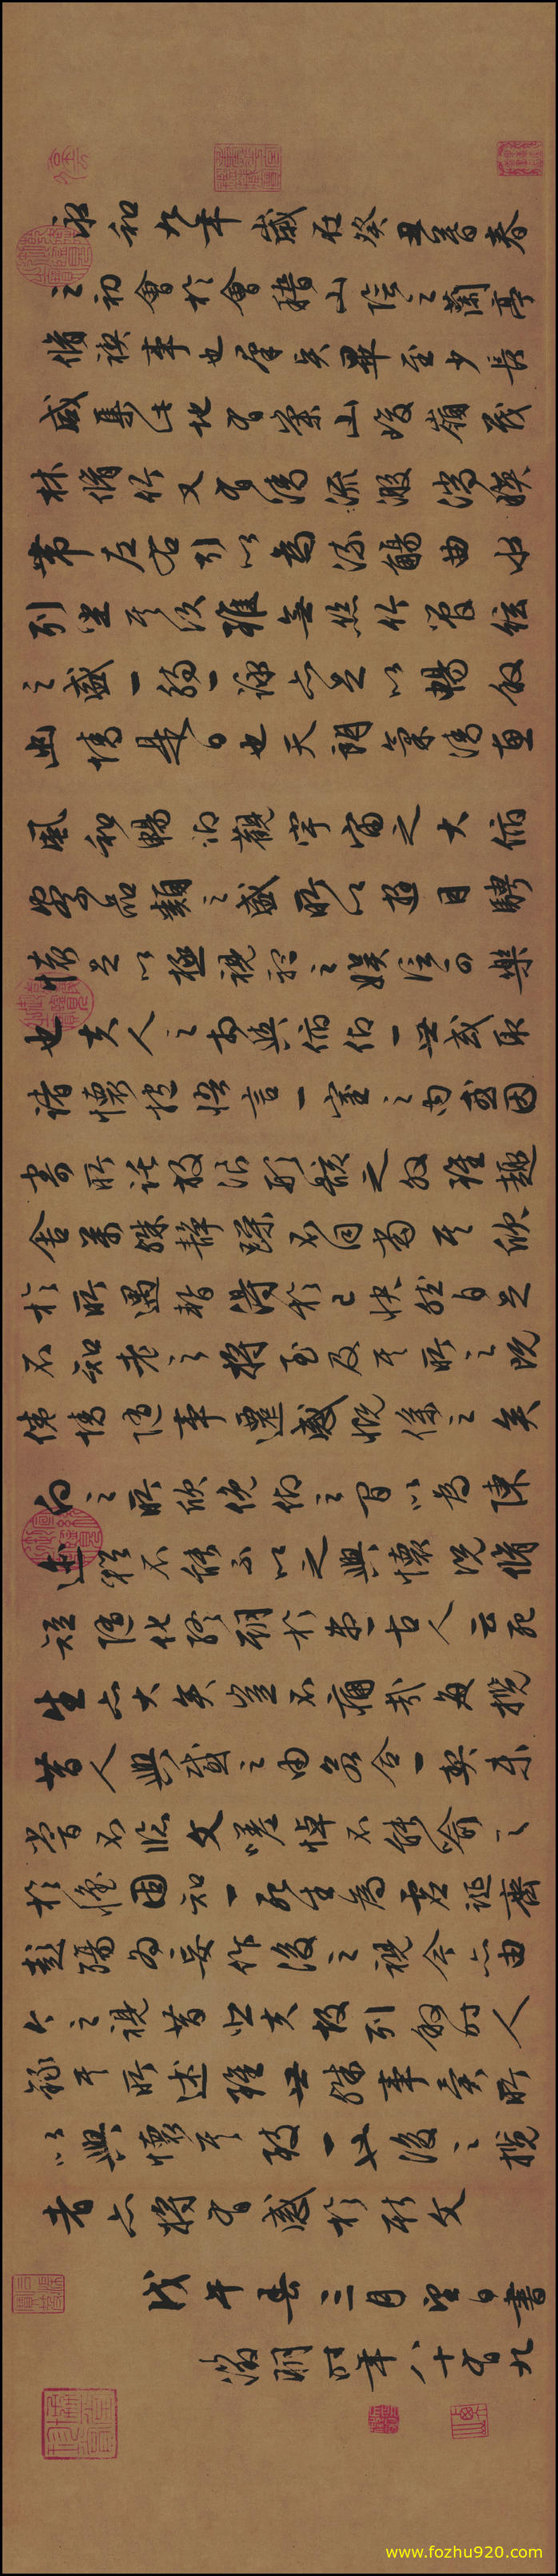 永和九年歲在癸丑暮春
之初會於會稽山陰之蘭亭
脩禊事也羣賢畢至少長
咸集此地有崇山峻嶺茂
林脩竹又有清流激湍暎
帶左右引以為流觴曲水
列坐其次雖無絲竹管絃
之盛一觴一詠亦足以暢敘
幽情是日也天朗氣清惠
風和暢仰觀宇宙之大俯
察品類之盛所以遊目騁
懷足以極視聽之娛信可樂
也夫人之相與俯仰一世或取
諸懷抱悟言一室之內或因
寄所託放浪形骸之外雖趣
舍萬殊靜躁不同當其欣
於所遇暫得於己快然自足
不知老之將至及其所之既
倦情隨事遷感慨係之矣
向之所欣俛仰之間以為陳
迹猶不能不以之興懷況脩
短隨化終期於盡古人云死
生亦大矣豈不痛哉每攬
昔人興感之由若合一契未
嘗不臨文嗟悼不能喻之
於懷固知一死生為虛誕齊
彭殤為妄作後之視今亦由
今之視昔悲夫故列敘時人
錄其所述雖世殊事異所
以興懷其致一也後之攬
者亦將有感於斯文
戊午春三月望日書
徵明時年八十有九
www.fozhu920.com